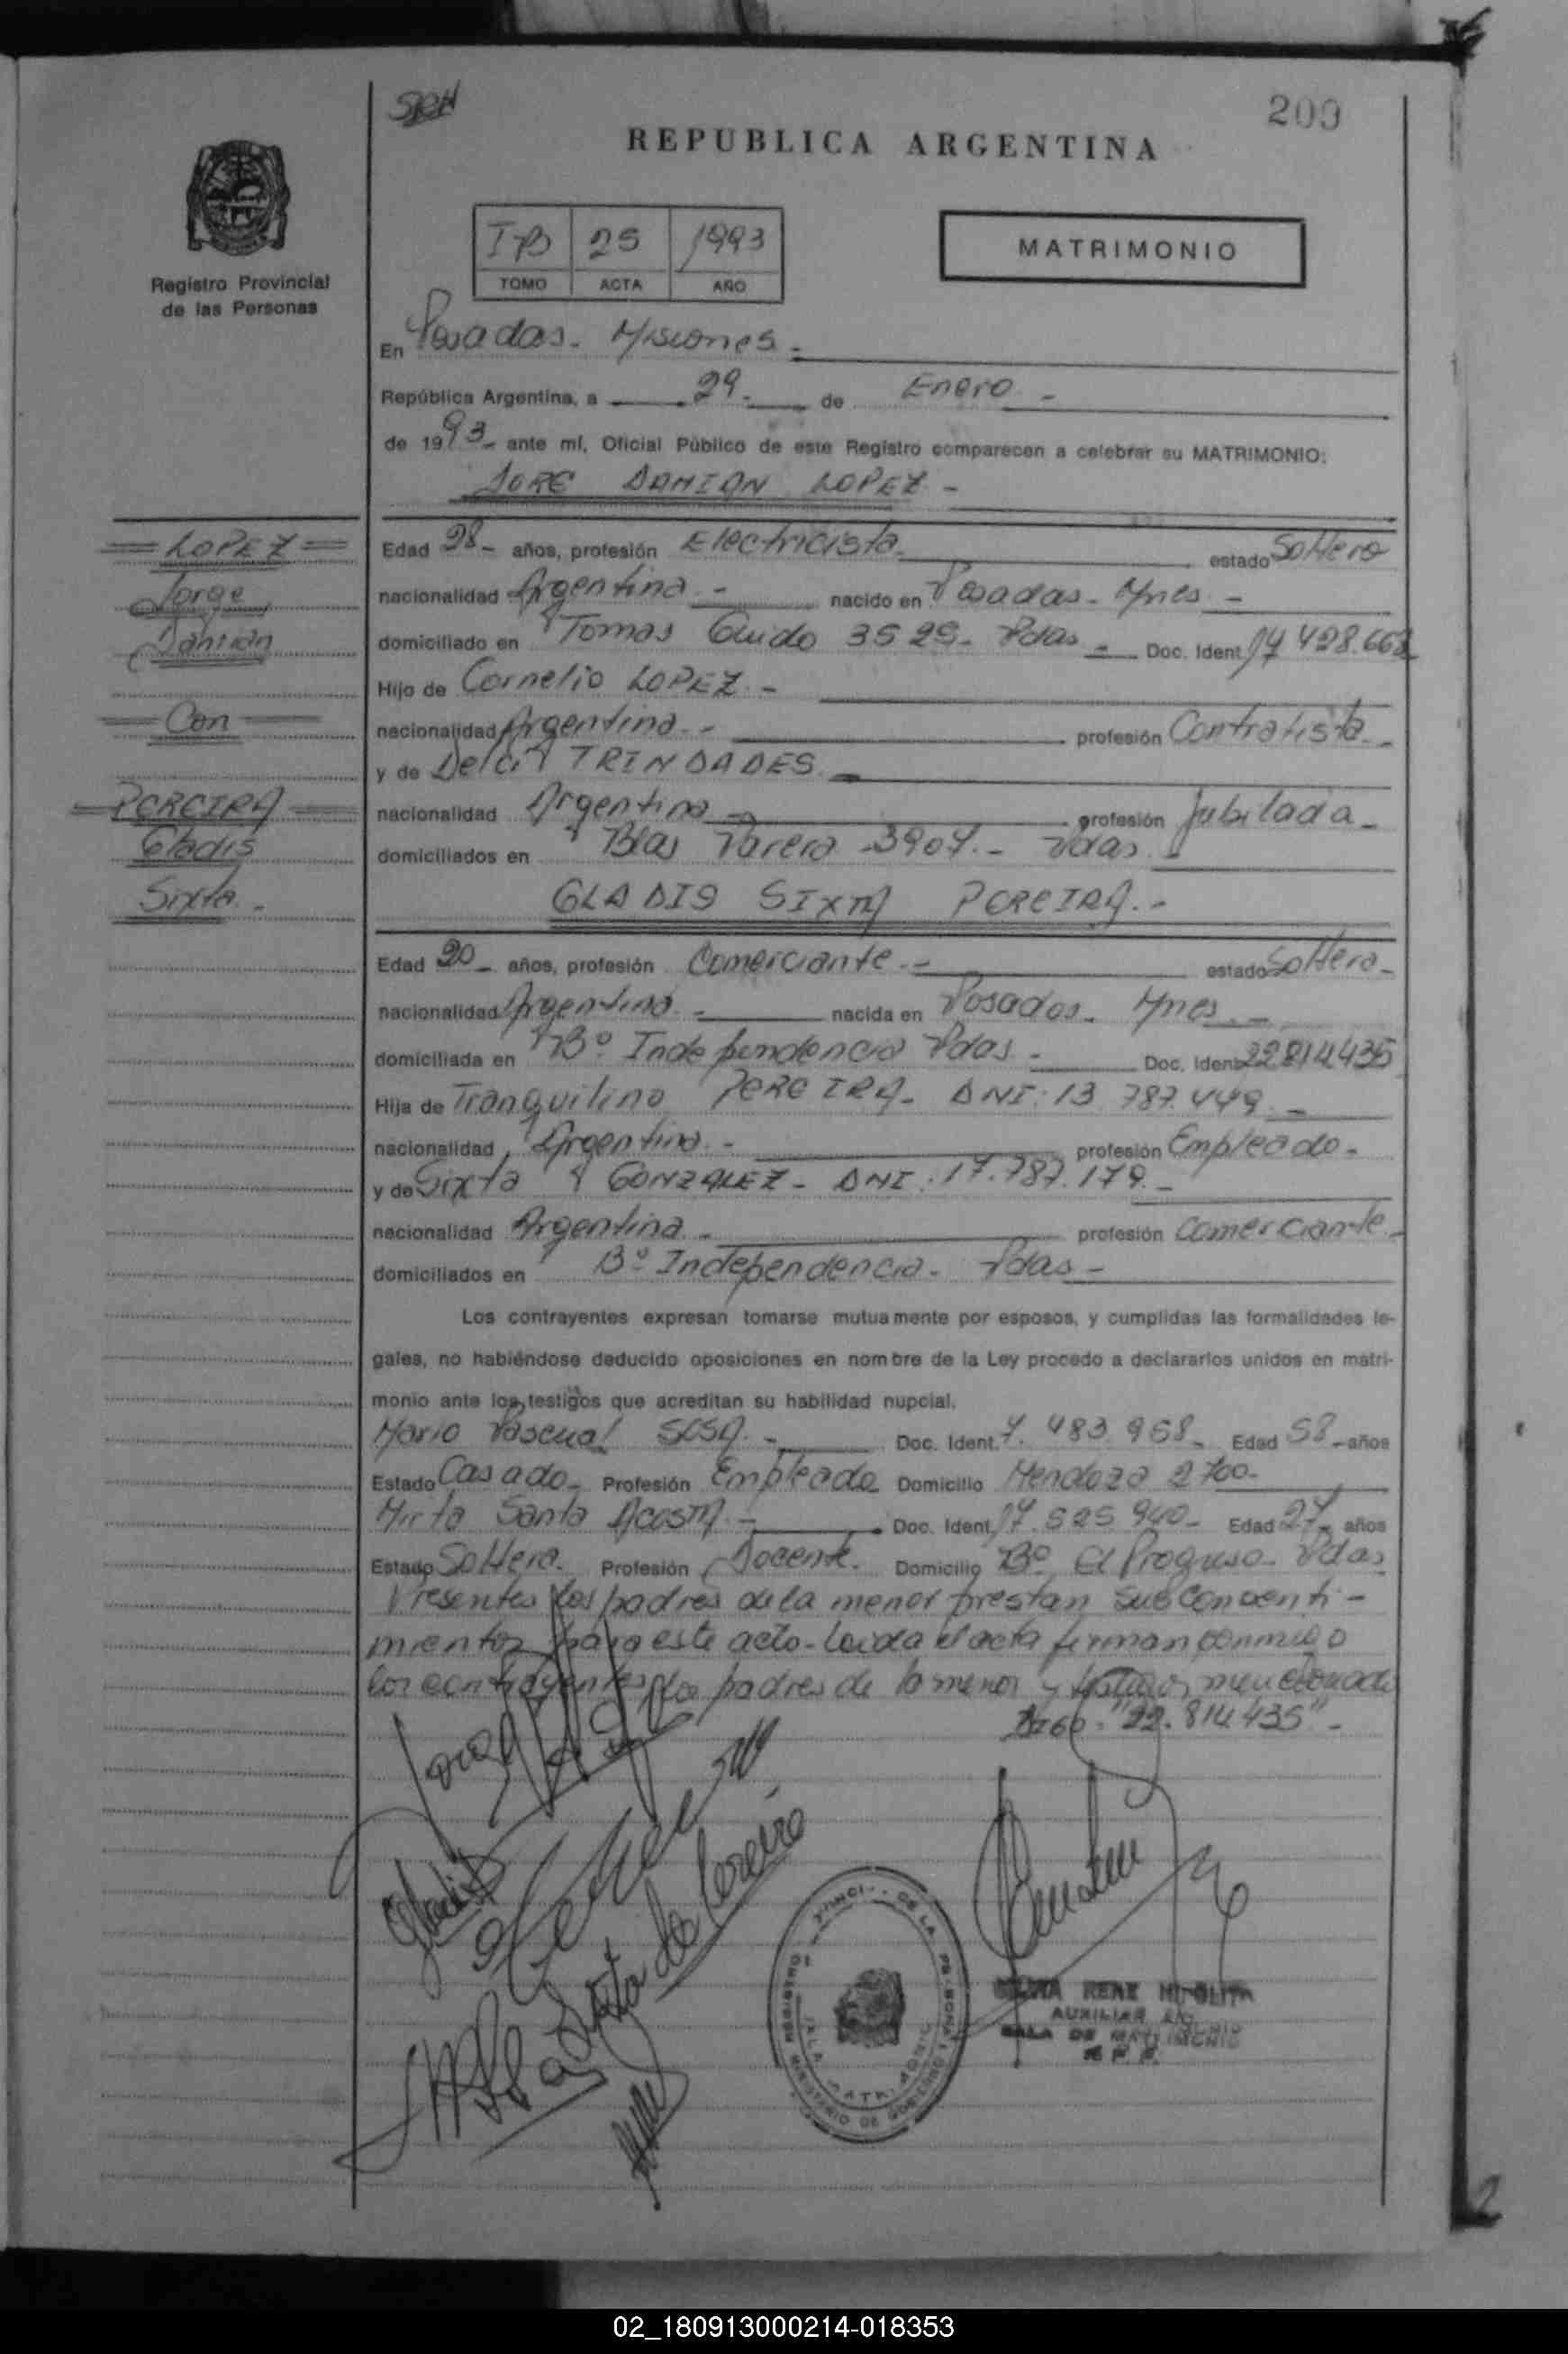 209
REPUBLICA ARGENTINA
Registro Provincial
de las Personas
25 1993
TOMO ACTA AÑO
MATRIMONIO
En Posadas - Misiones -
República Argentina, a 29 - de Enero -
de 1993 - ante mí, Oficial Público de este Registro comparecen a celebrar su MATRIMONIO:
JORGE DAMIAN LOPEZ -
LOPEZ
Jorge
Damian
Con
PEREIRA
Gladis
Sixta -
Edad 28 - años, profesión Electricista - estado Soltero
nacionalidad Argentina - nacido en Posadas - Mnes -
domiciliado en Tomas Guido 3525 - Pdas - Doc. Ident. 17 428.668
Hijo de Cornelio LOPEZ -
nacionalidad Argentina - profesión Contratista -
y de TRINDADES -
nacionalidad Argentina - profesión Jubilada -
domiciliados en Blas Parera 3907 - Pdas -
GLADIS SIXTA PEREIRA -
Edad 20 - años, profesión Comerciante - estado Soltera -
nacionalidad Argentina - nacida en Posadas - Mnes -
domiciliada en Bº Independencia Pdas - Doc. Ident. 22814435
Hija de Tranquilino PEREIRA - DNI: 13 787.449 -
nacionalidad Argentina - profesión Empleado -
y de Sixta GONZALEZ - DNI: 17.787.179 -
nacionalidad Argentina - profesión Comerciante -
domiciliados en Bº Independencia - Pdas -
Los contrayentes expresan tomarse mutuamente por esposos, y cumplidas las formalidades le-
gales, no habiéndose deducido oposiciones en nombre de la Ley procedo a declararlos unidos en matri-
monio ante los testigos que acreditan su habilidad nupcial.
Mario Pascual SOSA - Doc. Ident. 7.483.958 - Edad 58 - años
Estado Casado - Profesión Empleado Domicilio Mendoza 2700 -
Mirta Santa ACOSTA - Doc. Ident. 17.525 940 - Edad 27 - años
Estado Soltera - Profesión Docente - Domicilio Bº El Progreso - Pdas
Presentes los padres de la menor prestan su consenti-
miento para este acto - Leida el acta firman conmigo
los contrayentes los padres de la menor y testigos mencionados
"22.814.435" -
Sixta de Pereira
RENE HIPOLITA
AUXILIAR
SALA DE MATRIMONIO
02_180913000214-018353